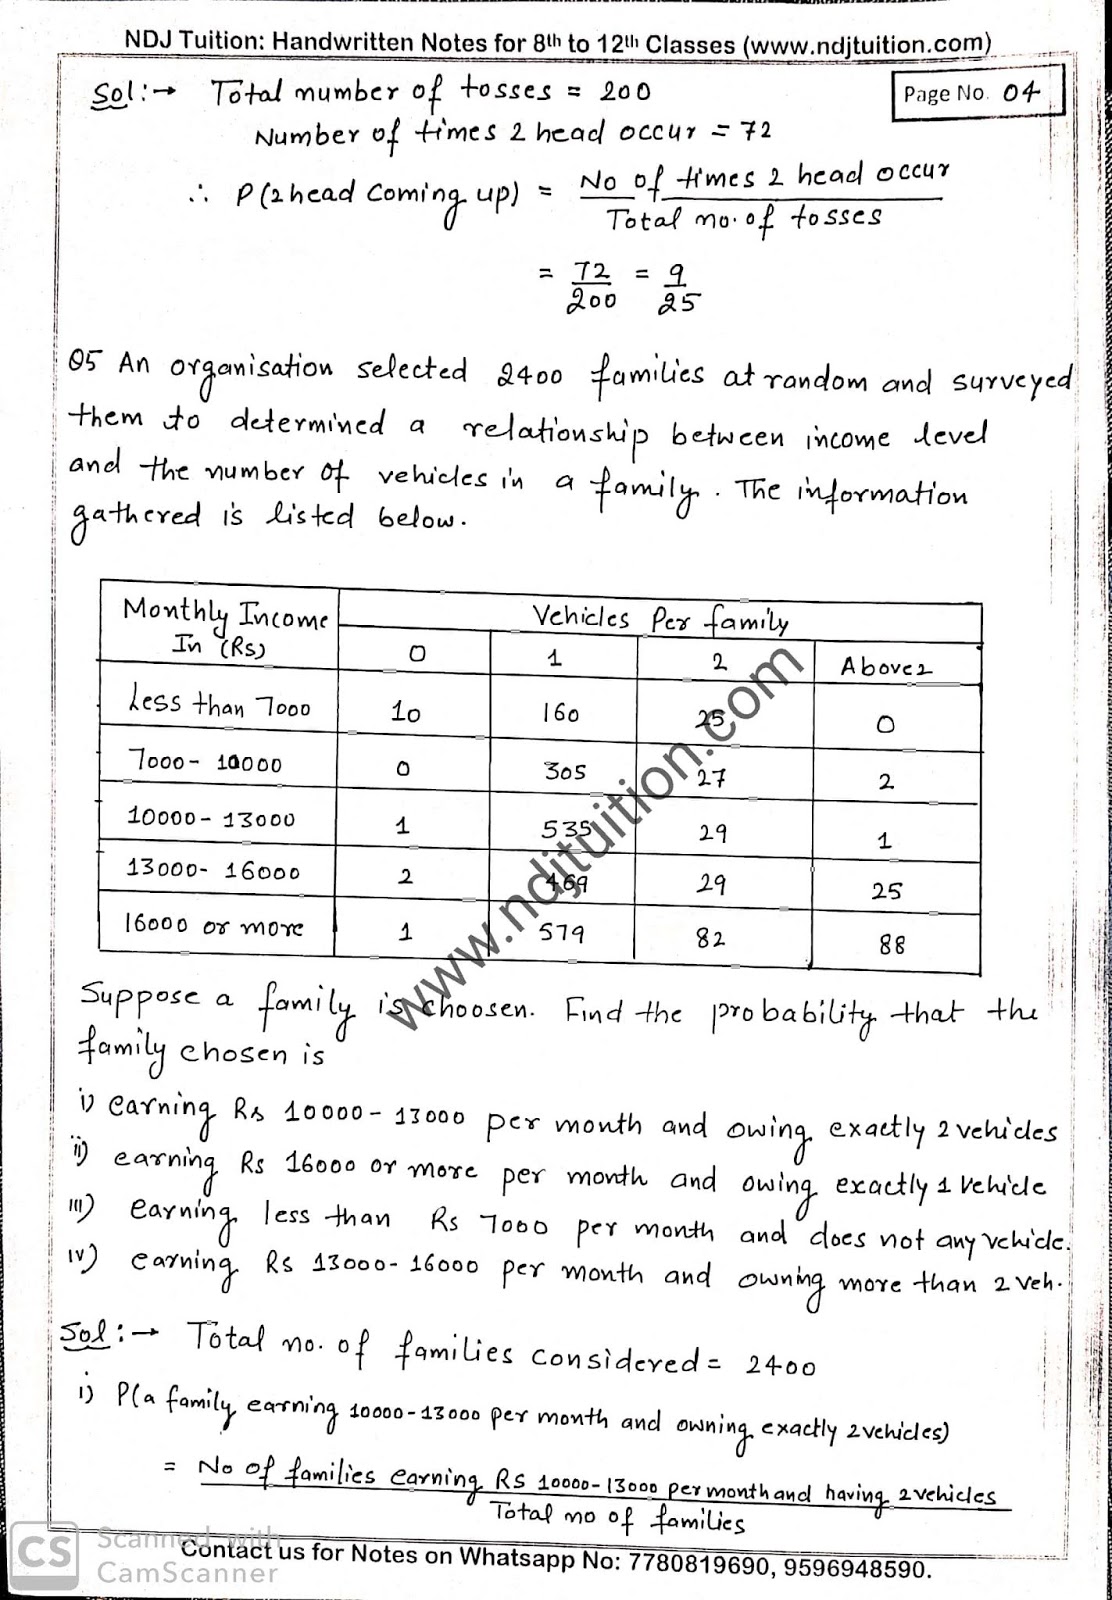 NDJ Tuition: Handwritten Notes for 8th to 12th Classes (www.ndjtuition.com)
Page No. 04
Sol:→ Total number of tosses = 200
Number of times 2 head occur = 72
∴ P(2head coming up) = No of times 2 head occur
Total no. of tosses
= 72 = 9
200 25
Q5 An organisation selected 2400 families at random and surveyed
them to determined a relationship between income level
and the number of vehicles in a family. The information
gathered is listed below.
Monthly Income Vehicles Per family
In (Rs) 0 1 2 Above 2
Less than 7000 10 160 25 0
7000 - 10000 0 305 27 2
10000 - 13000 1 535 29 1
13000 - 16000 2 469 29 25
16000 or more 1 579 82 88
www.ndjtuition.com
Suppose a family is choosen. Find the probability that the
family chosen is
i) earning Rs 10000 - 13000 per month and owing exactly 2 vehicles
ii) earning Rs 16000 or more per month and owing exactly 1 vehicle
iii) earning less than Rs 7000 per month and does not any vehicle.
iv) earning Rs 13000 - 16000 per month and owning more than 2 veh.
Sol:→ Total no. of families considered = 2400
i) P(a family earning 10000-13000 per month and owning exactly 2 vehicles)
= No of families earning Rs 10000-13000 per month and having 2 vehicles
Total no of families
CS Scanned with
CamScanner
Contact us for Notes on Whatsapp No: 7780819690, 9596948590.